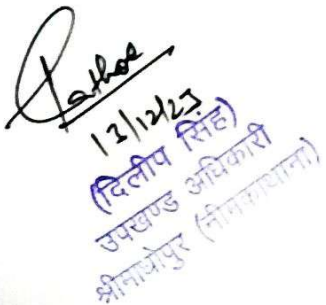 Rathor
13/12/23
(दिलीप सिंह)
उपखण्ड अधिकारी
श्रीमाधोपुर (नीमकाथाना)